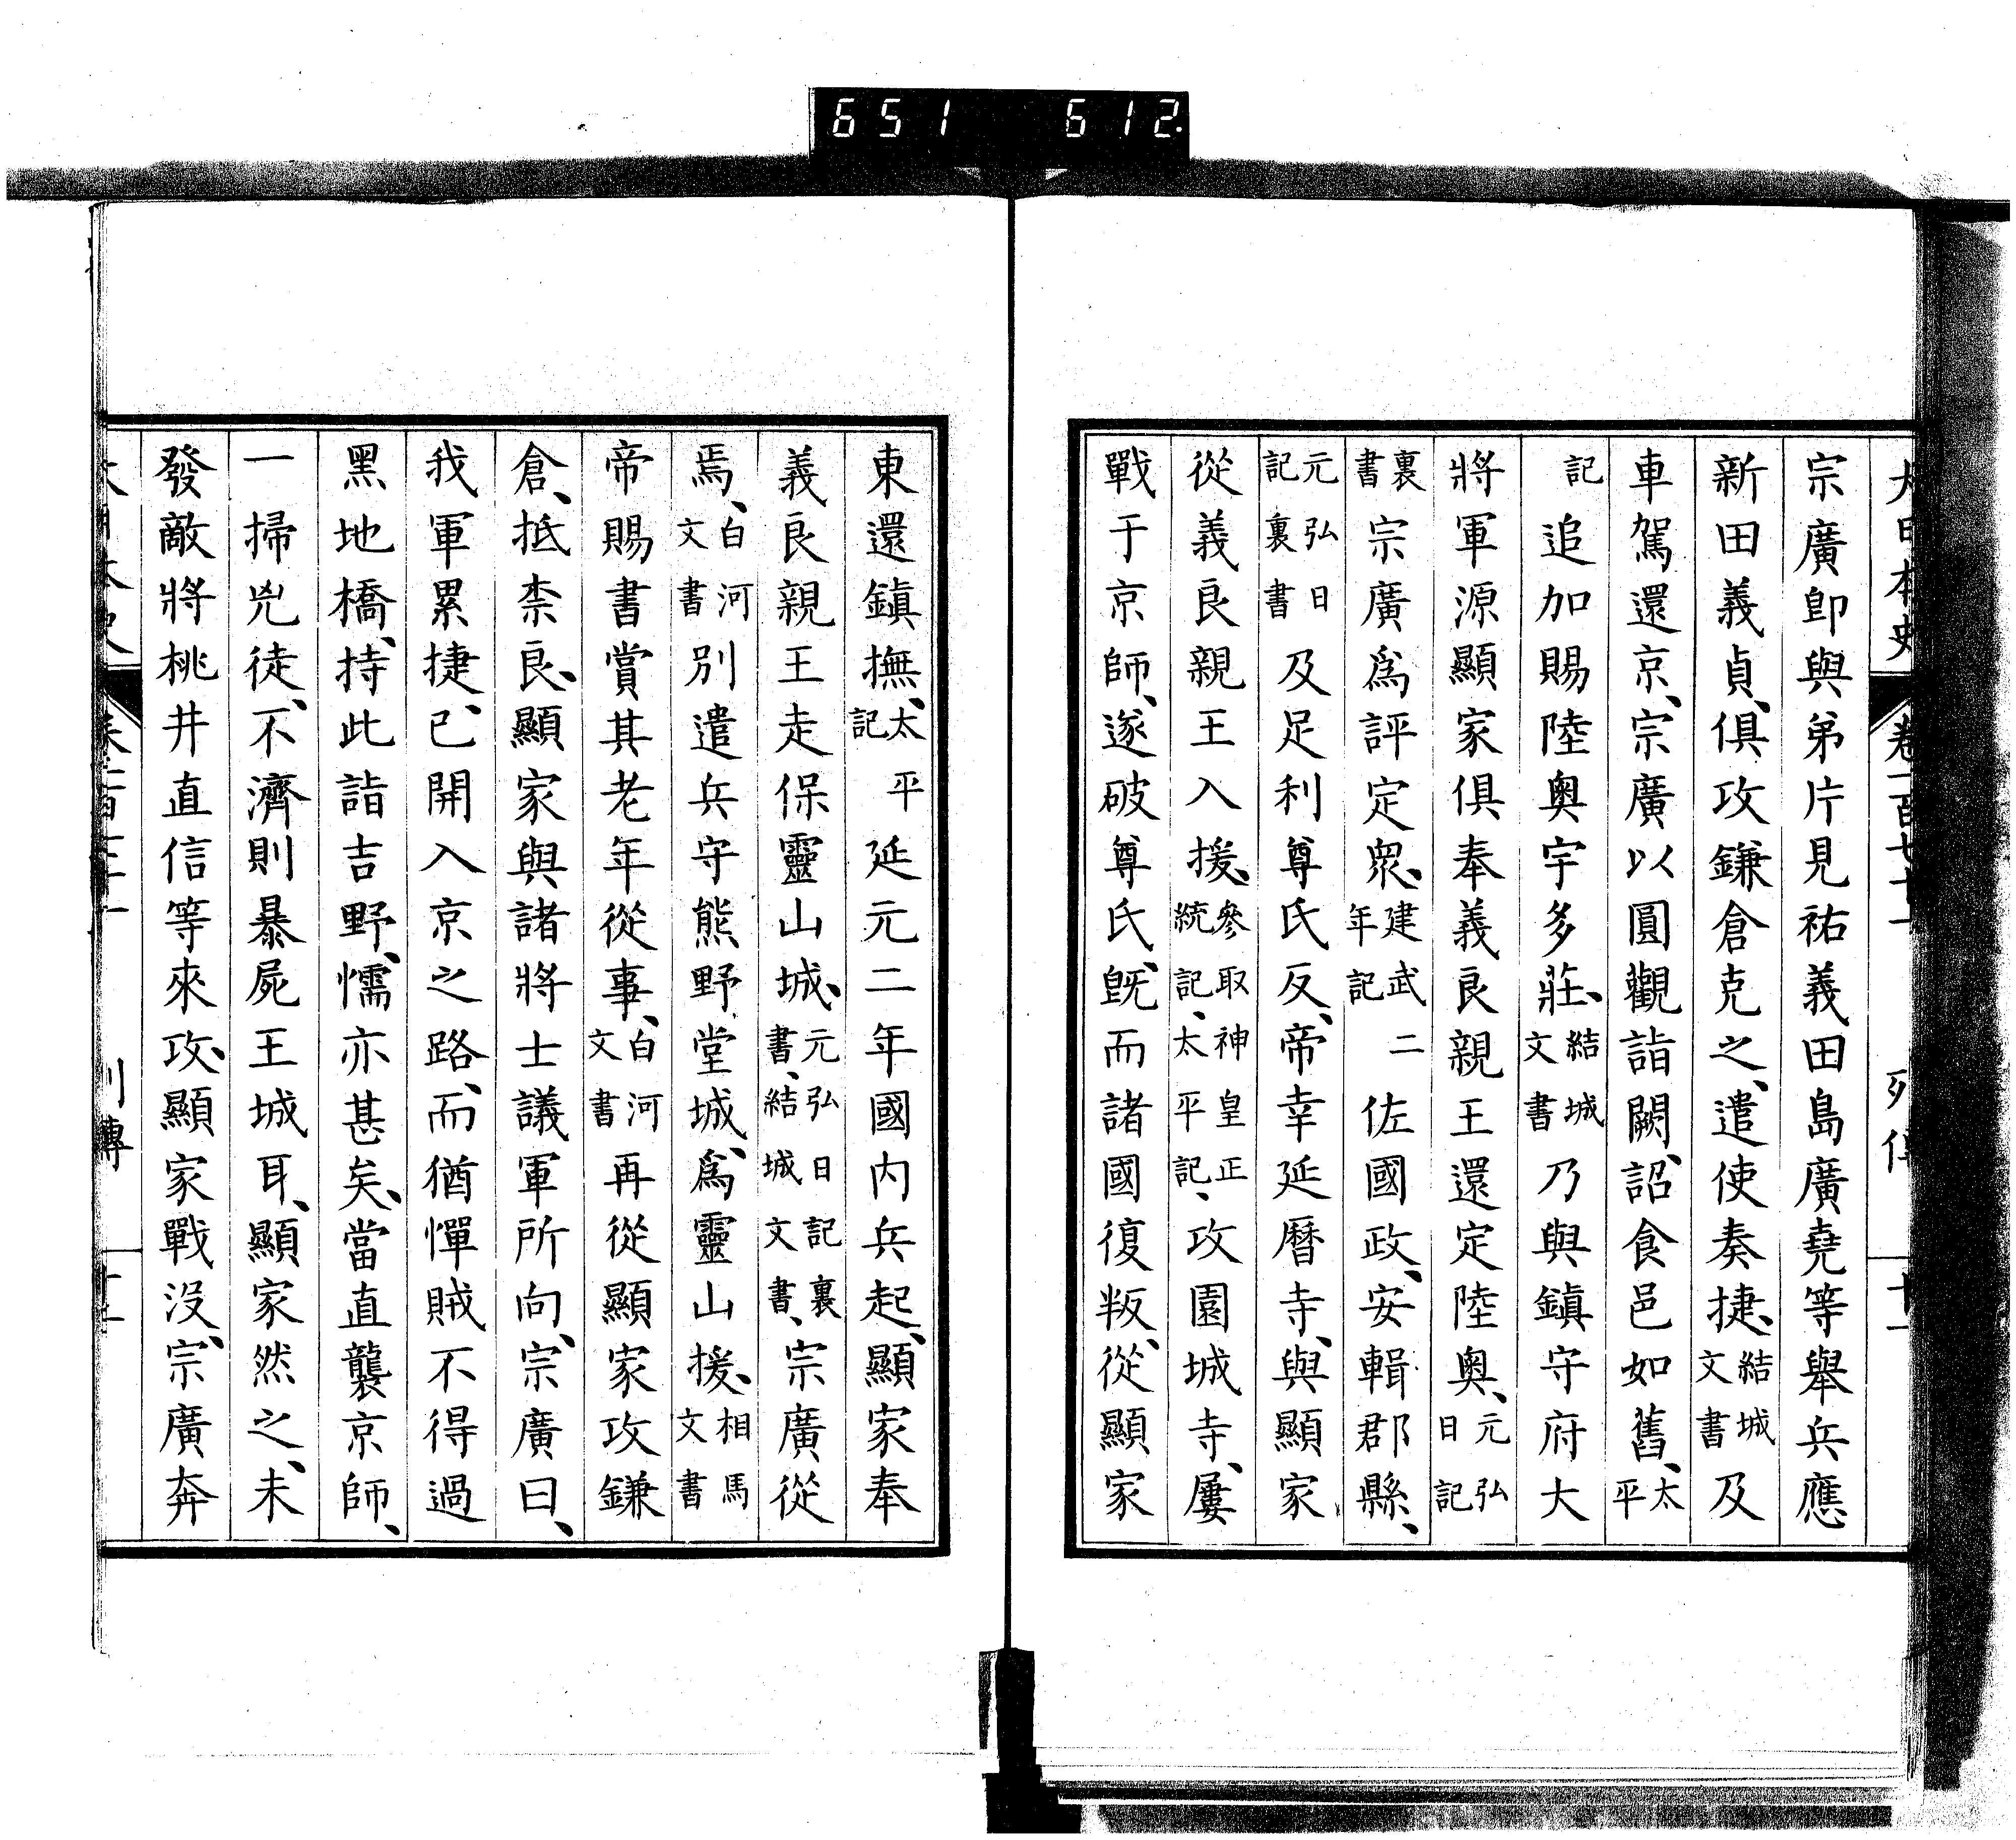 651 612.
大日本史 卷一百七十一 列傳 十一
宗廣卽與弟片見祐義田島廣堯等擧兵應
新田義貞、俱攻鎌倉克之、遣使奏捷、結城文書及
車駕還京、宗廣以圓觀詣闕、詔食邑如舊、太平
記追加賜陸奧宇多莊、結城文書乃與鎭守府大
將軍源顯家俱奉義良親王還定陸奧、元弘日記
裏書宗廣爲評定衆、建武二年記佐國政、安輯郡縣、
元弘日記裏書及足利尊氏反、帝幸延曆寺、與顯家
從義良親王入援、參取神皇正統記、太平記、攻園城寺、屢
戰于京師、遂破尊氏、旣而諸國復叛、從顯家
東還鎭撫、太平記延元二年國內兵起、顯家奉
義良親王走保靈山城、元弘日記裏書、結城文書、宗廣從
焉、白河文書別遣兵守熊野堂城、爲靈山援、相馬文書
帝賜書賞其老年從事、白河文書再從顯家攻鎌
倉、抵柰良、顯家與諸將士議軍所向、宗廣曰、
我軍累捷、已開入京之路、而猶憚賊不得過
黑地橋、持此詣吉野、懦亦甚矣、當直襲京師、
一掃兇徒、不濟則暴屍王城耳、顯家然之、未
發敵將桃井直信等來攻、顯家戰沒、宗廣奔